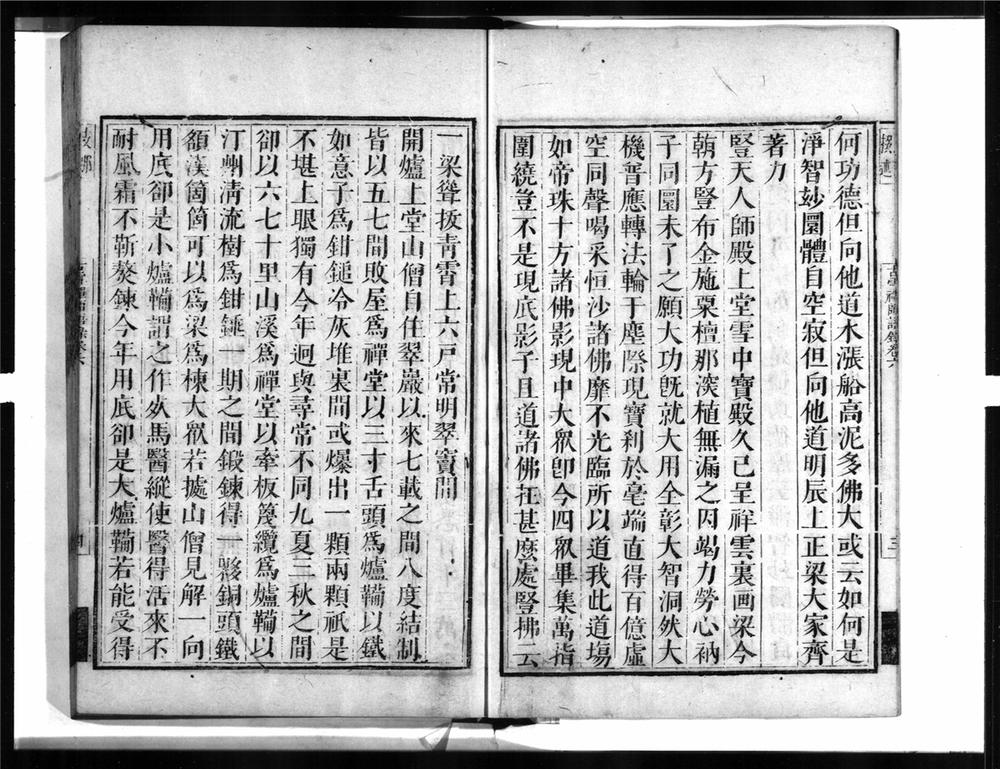 何功德但向他道水漲船高泥多佛大或云如何是
淨智妙圓體自空寂但向他道明辰上正梁大家齊
著力
豎天人師殿上堂雪中寶殿久已呈祥雲裏画梁今
朝方豎布金施粟檀那深植無漏之因竭力勞心衲
子同圓未了之願大功既就大用全彰大智洞然大
機普應轉法輪于塵際現寶刹於毫端直得百億虛
空同聲喝采恒沙諸佛靡不光臨所以道我此道塲
如帝珠十方諸佛影現中大眾卽今四眾畢集萬指
圍繞豈不是現底影子且道諸佛在甚麽處豎拂云
一梁聳拔青霄上六戶常明翠竇間
開爐上堂山僧自住翠巖以來七載之間八度結制
皆以五七間敗屋爲禪堂以三寸舌頭爲爐鞴以鐵
如意子爲鉗鎚冷灰堆裏間或爆出一顆兩顆祇是
不堪上眼獨有今年迥與尋常不同九夏三秋之間
卻以六七十里山溪爲禪堂以牽板篾纜爲爐鞴以
汀州清流樹爲鉗錘一期之間鍛鍊得一夥銅頭鐵
額漢箇箇可以爲梁爲棟大眾若據山僧見解一向
用底卻是小爐鞴謂之作死馬醫縱使醫得活來不
耐風霜不靳獒鍊今年用底卻是大爐鞴若能受得